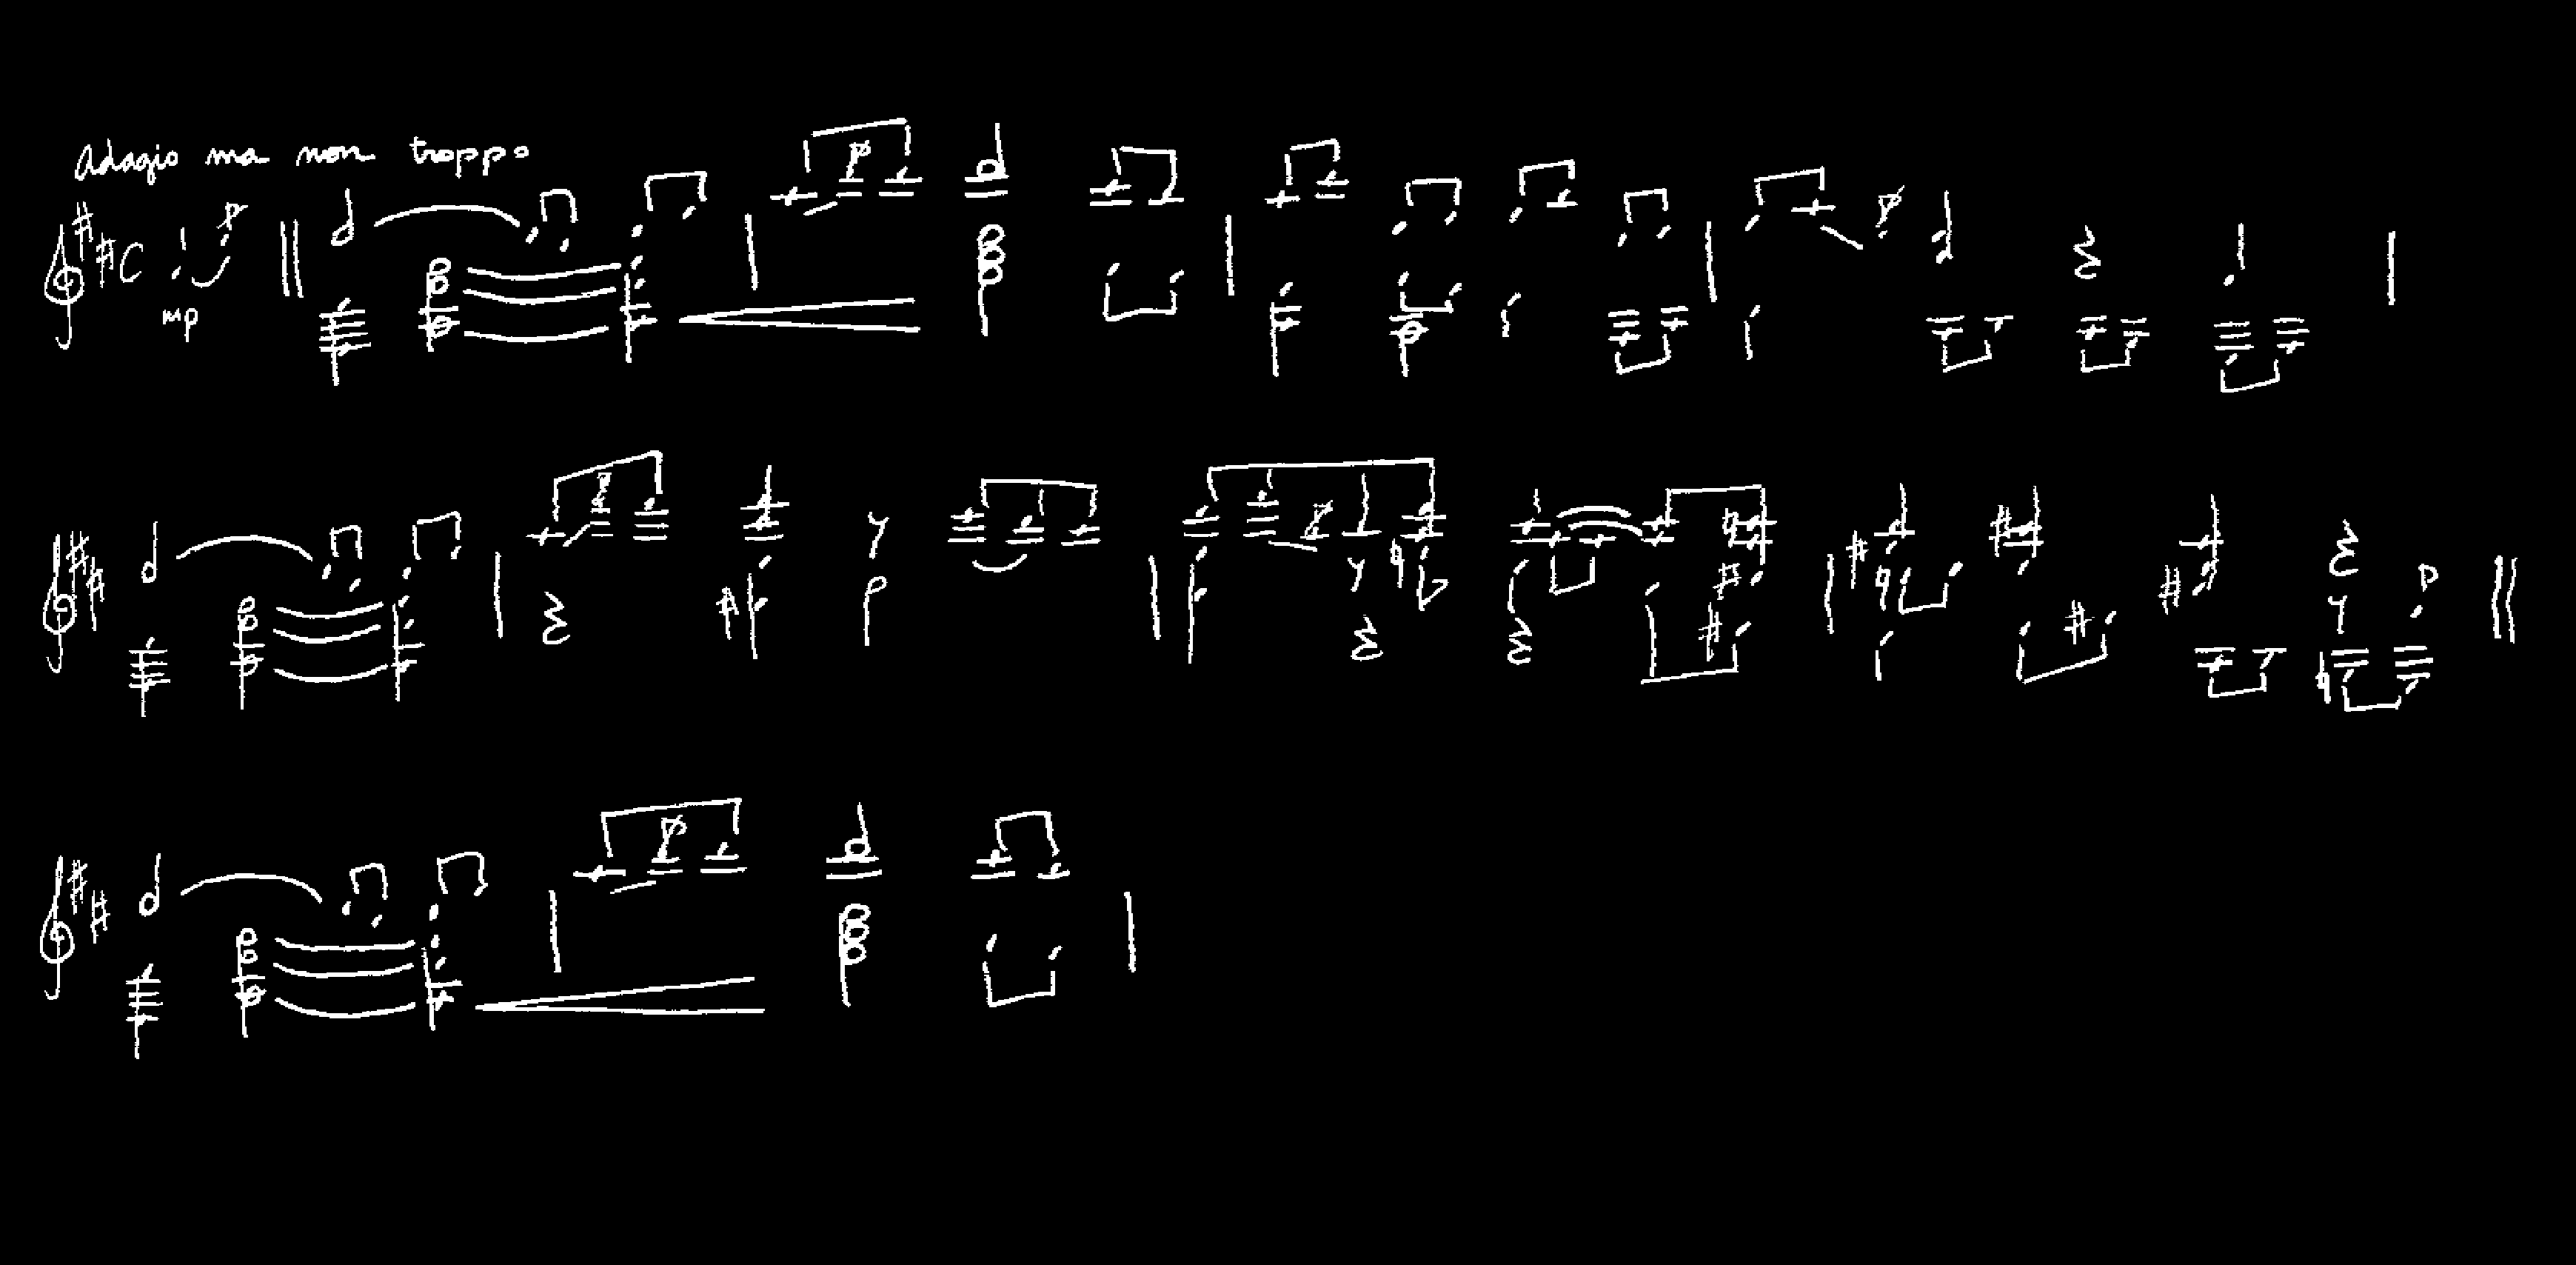 adagio ma non troppo
C
mp